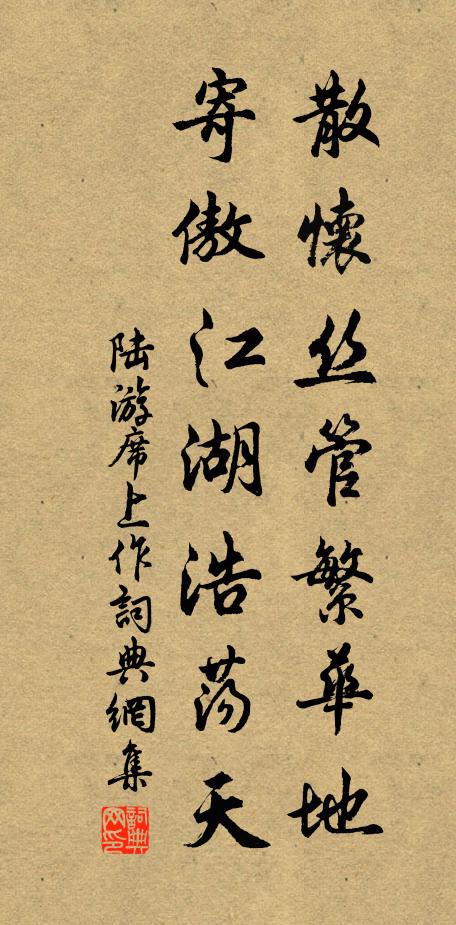 散懷丝管繁華地
寄傲江湖浩荡天
陆游席上作詞典網集
詞典網印